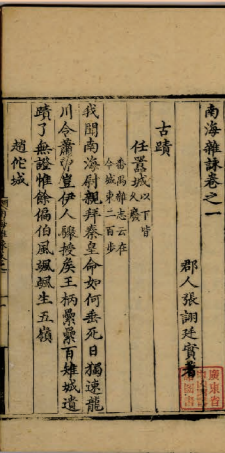 南海雜詠卷之一
郡人張詡廷實著
古蹟
任囂城以下皆久廢
番禺雜志云在今城東二百步
我聞南海尉親拜秦皇命如何垂死日獨速龍
川令蕭曹豈伊人驟授侯王柄纍纍百雉城遺
蹟了無證惟餘偏伯風颯颯生五嶺
趙佗城
廣東省
圖書